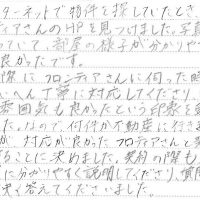 ターネットで物件を探していたとき、
ティアさんのHPを見つけました。写真
っていて、部屋の様子が分かりやす
良かったです。
際にフロンティアさんに伺った時
へん丁寧に対応してくださり、
雰囲気も良かったという印象を
た。なので、何件か不動産に行きま
が、対応が良かったフロンティアさんと
ることに決めました。契約の際も
に分かりやすく説明してくださり、質問
快く答えてくださいました。